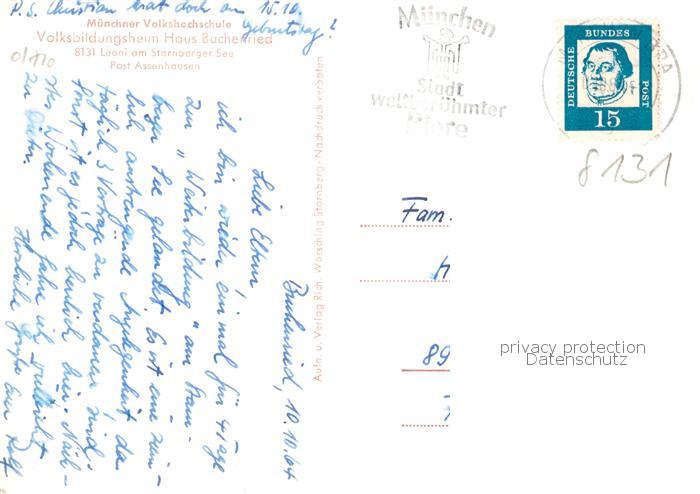 P.S. Christian hat doch am 15.10.
Geburtstag!
Münchner Volkshochschule
Volksbildungsheim Haus Buchenried
8131 Leoni am Starnberger See
Post Assenhausen
0/110
Buchenried, 10.10.64
Liebe Eltern,
ich bin wieder einmal für 4 Tage
zur "Weiterbildung" am Starn-
berger See gelandet. Es ist eine ziem-
lich anstrengende Angelegenheit, da
täglich 3 Vorträge zu verdauen sind.
Sonst ist es jedoch herrlich hier. Näch-
stes Wochenende fahre ich vielleicht
zu
Herzliche Grüße Euer Rolf
Aufn. u. Verlag Rich. Wörsching Starnberg · Nachdruck verboten
München
Stadt
weltberühmter
Biere
DEUTSCHE
BUNDES
POST
15
8131
Fam.
89
privacy protection
Datenschutz